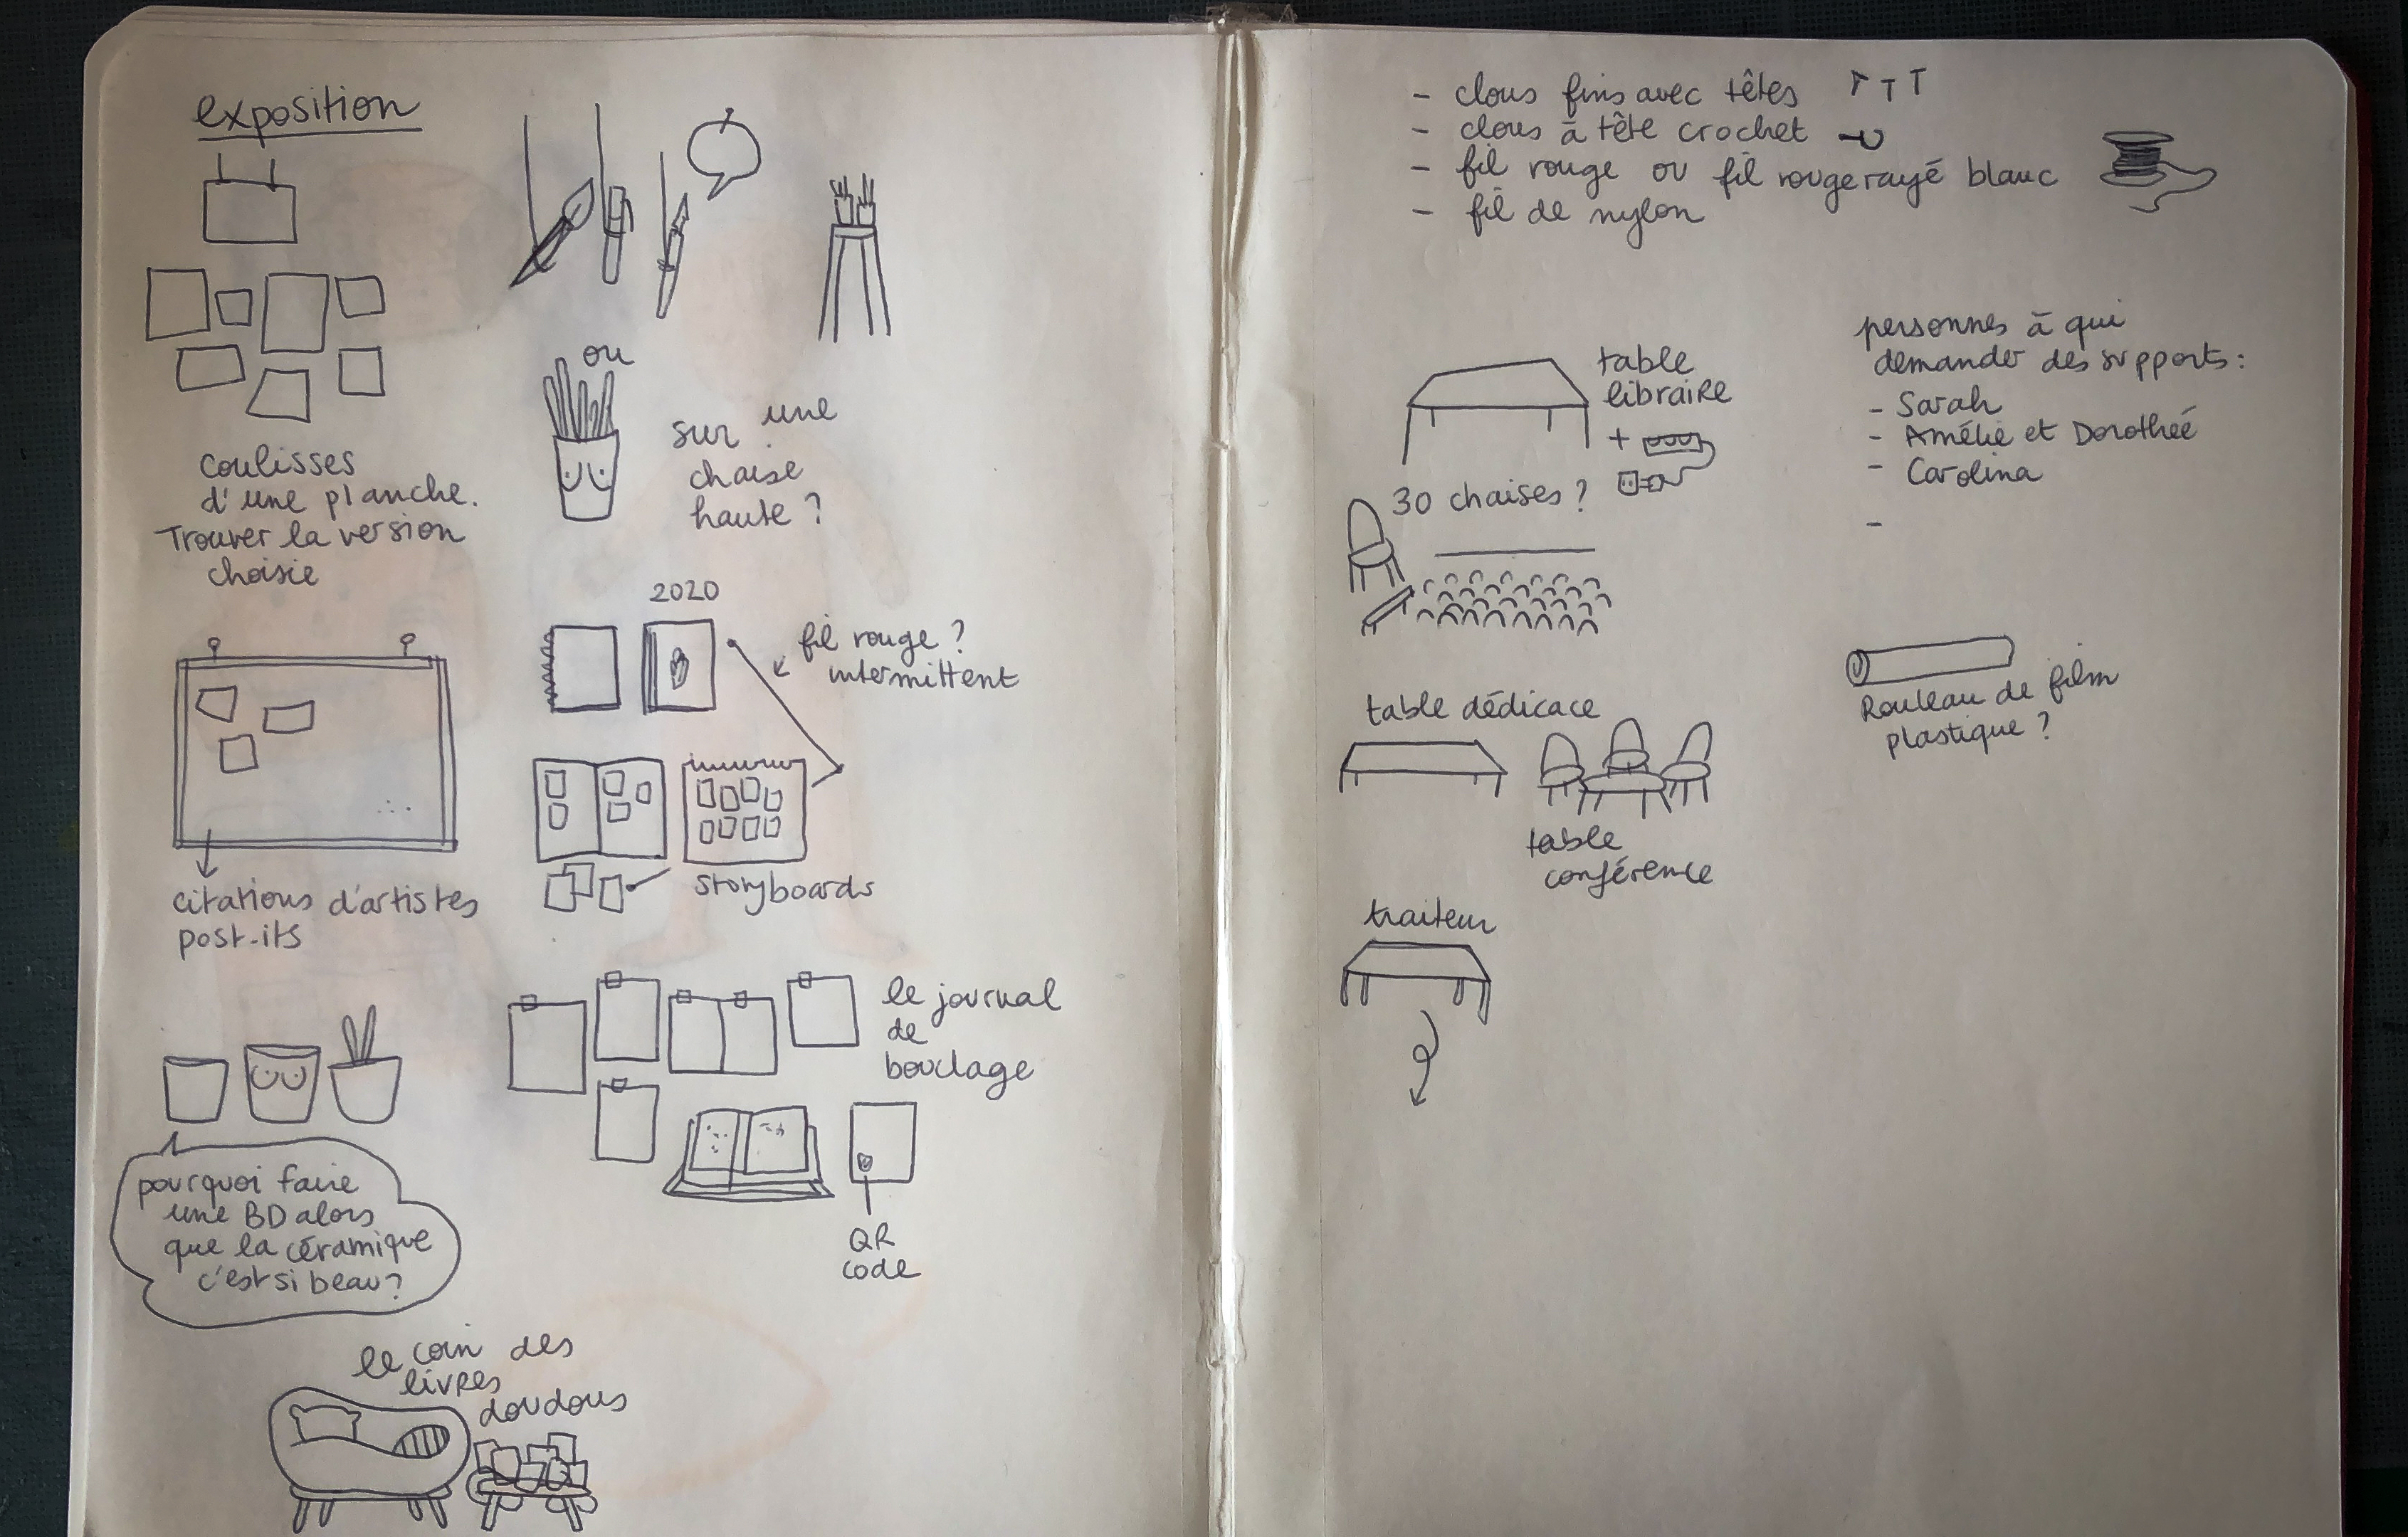 exposition
coulisses
d'une planche.
Trouver la version
choisie
ou
sur une
chaise
haute ?
2020
fil rouge ?
intermittent
storyboards
citations d'artistes
post-its
le journal
de
bouclage
QR
code
pourquoi faire
une BD alors
que la céramique
c'est si beau ?
le coin des
livres
doudous
- clous fins avec têtes
- clous à tête crochet
- fil rouge ou fil rouge rayé blanc
- fil de nylon
table
libraire
+
30 chaises ?
table dédicace
table
conférence
traiteur
personnes à qui
demander des supports :
- Sarah
- Amélie et Dorothée
- Carolina
-
Rouleau de film
plastique ?